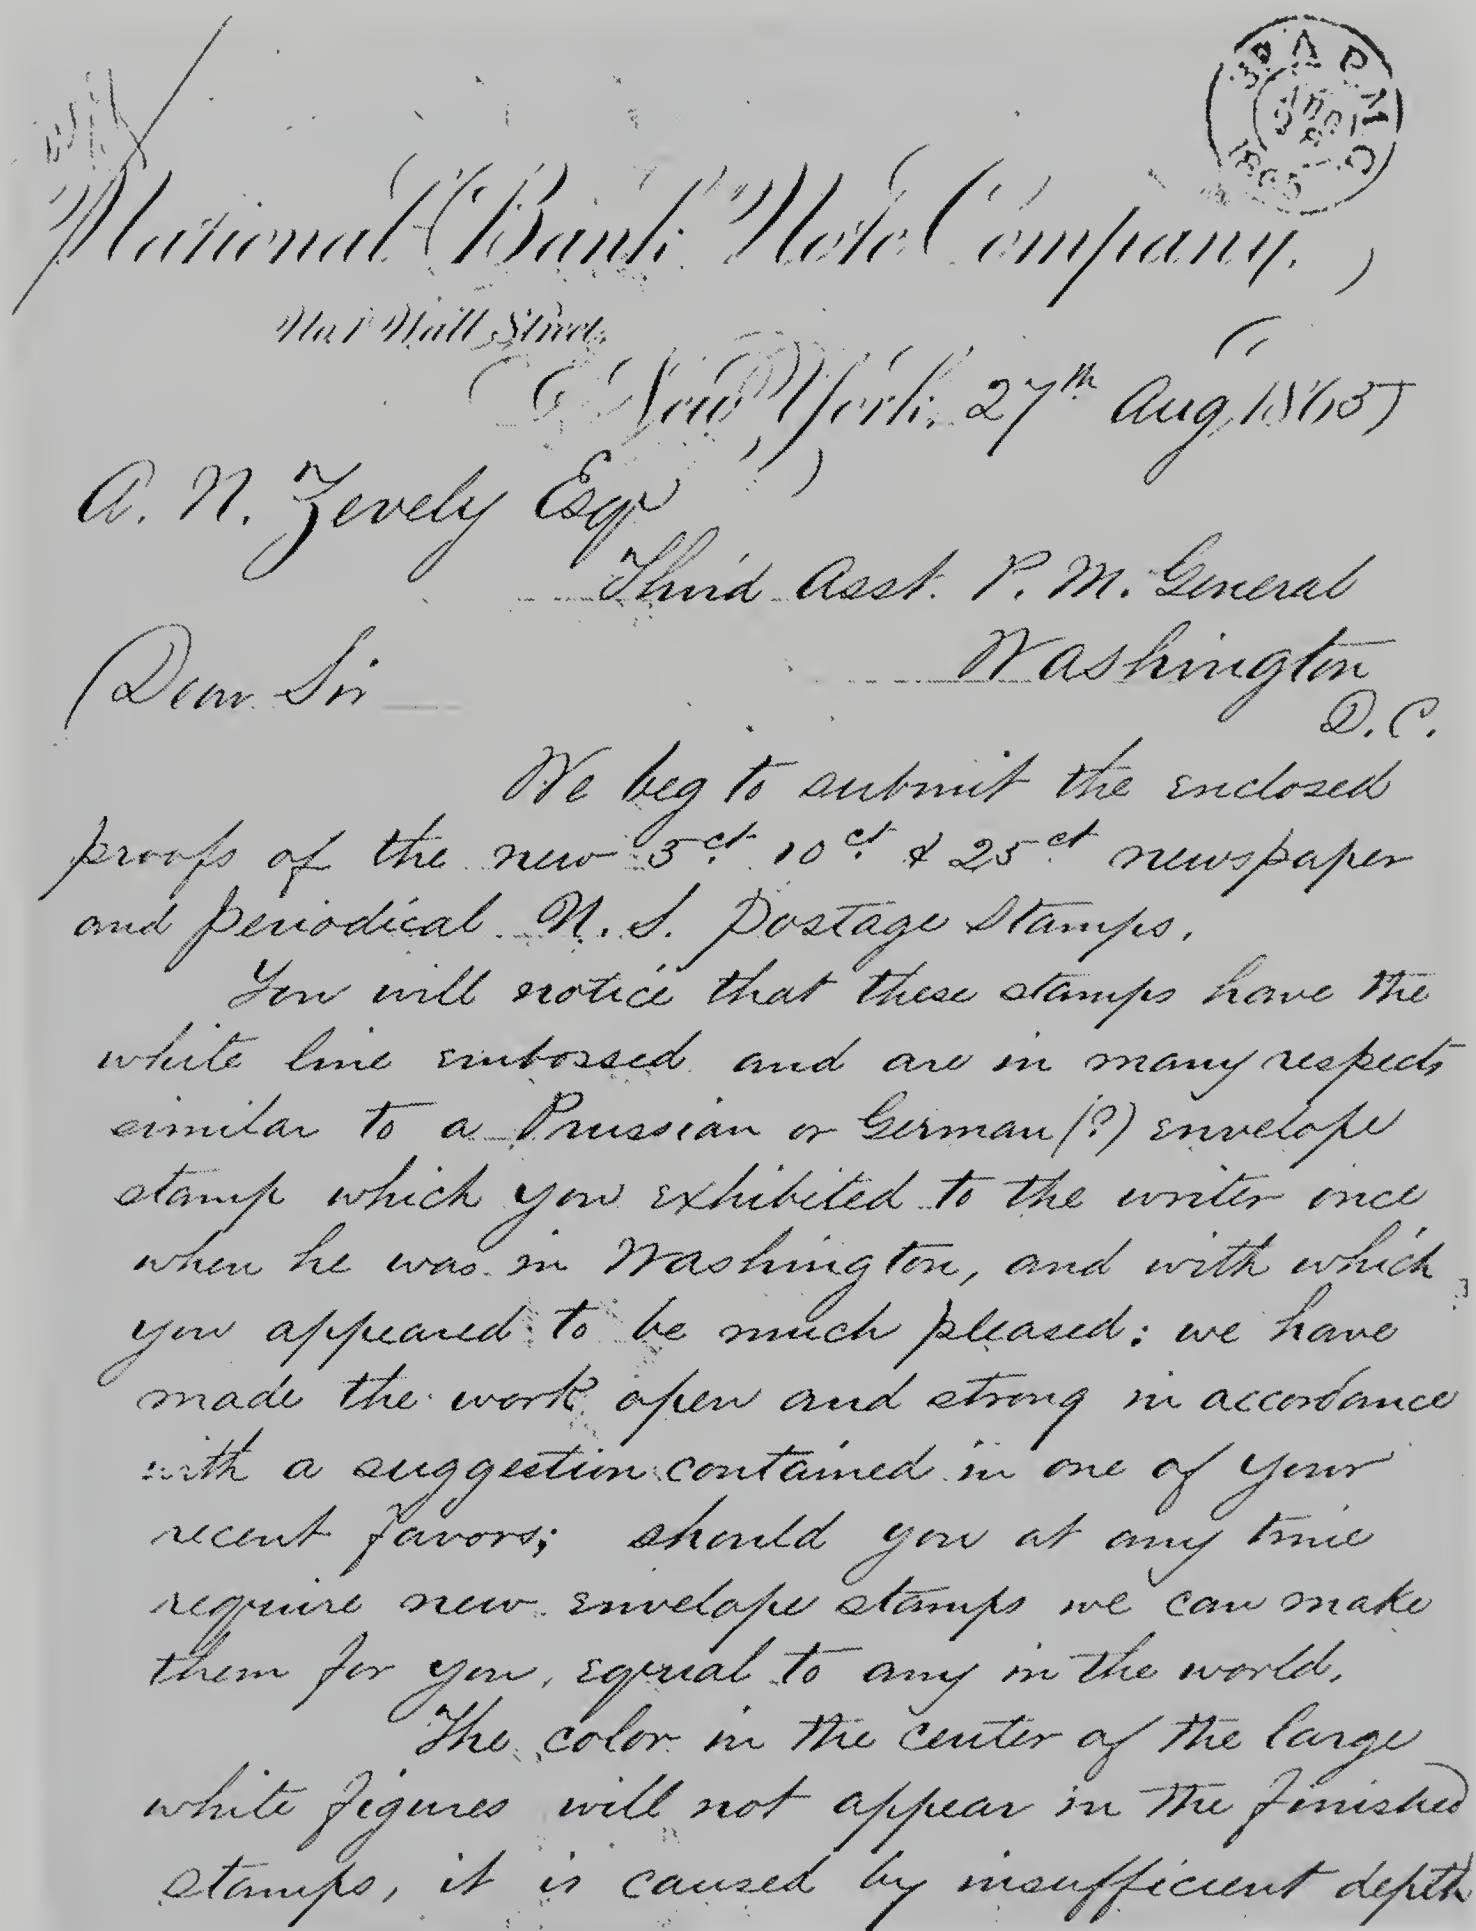 3D A P.M.G
AUG 28
1865
National Bank Note Company,
No. 1 Wall Street,
New York, 27th Aug, 1865
A. N. Zevely Esqr
Third Asst. P. M. General
Washington
D. C.
Dear Sir
We beg to submit the enclosed
proofs of the new 5ct. 10ct. & 25ct newspaper
and periodical U. S. Postage Stamps.
You will notice that these stamps have the
white line embossed and are in many respects
similar to a Prussian or German (?) envelope
stamp which you exhibited to the writer once
when he was in Washington, and with which
you appeared to be much pleased: we have
made the work open and strong in accordance
with a suggestion contained in one of your
recent favors; should you at any time
require new envelope stamps we can make
them for you, equal to any in the world.
The color in the center of the large
white figures will not appear in the finished
stamps, it is caused by insufficient depth